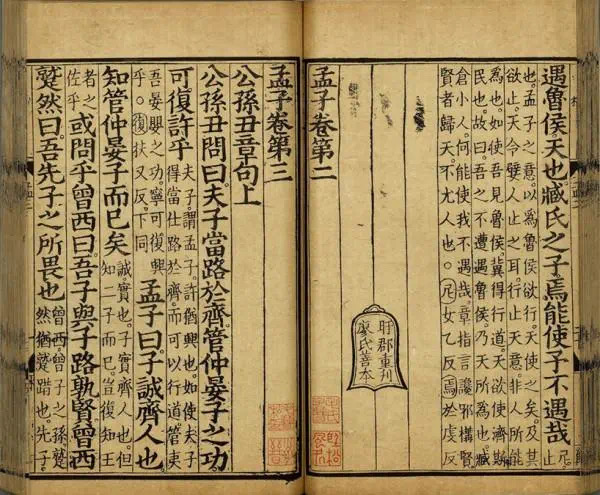 遇魯侯。天也。臧氏之子。焉能使子不遇哉尼止
也。孟子之意。以爲魯侯欲行。天使之矣。及其
欲止。天令嬖人止之耳。行止天意。非人所能
爲也。如使吾見魯侯。冀得行道。天欲使濟斯
民也。故曰。吾之不遭遇魯侯。乃天所爲也。臧
倉小人。何能使我不遇哉。章指言讒邪構賢
賢者歸天。不尤人也。尼女乙反焉於虔反
盱郡重刊
廖氏善本
孟子卷第二
孟子卷第三
公孫丑章句上
公孫丑問曰。夫子當路於齊。管仲晏子之功。
可復許乎夫子。謂孟子。許猶興也。如使夫子得當仕路於齊。而可以行道。管夷
吾晏嬰之功。寧可復興乎。復扶又反。下同孟子曰。子誠齊人也
知管仲晏子而已矣誠實也。子實齊人也。但知二子而已。豈復知王
者之佐乎或問乎曾西曰。吾子與子路孰賢。曾西
蹵然曰。吾先子之所畏也曾西。曾子之孫。蹵然猶蹵踖也。先子。